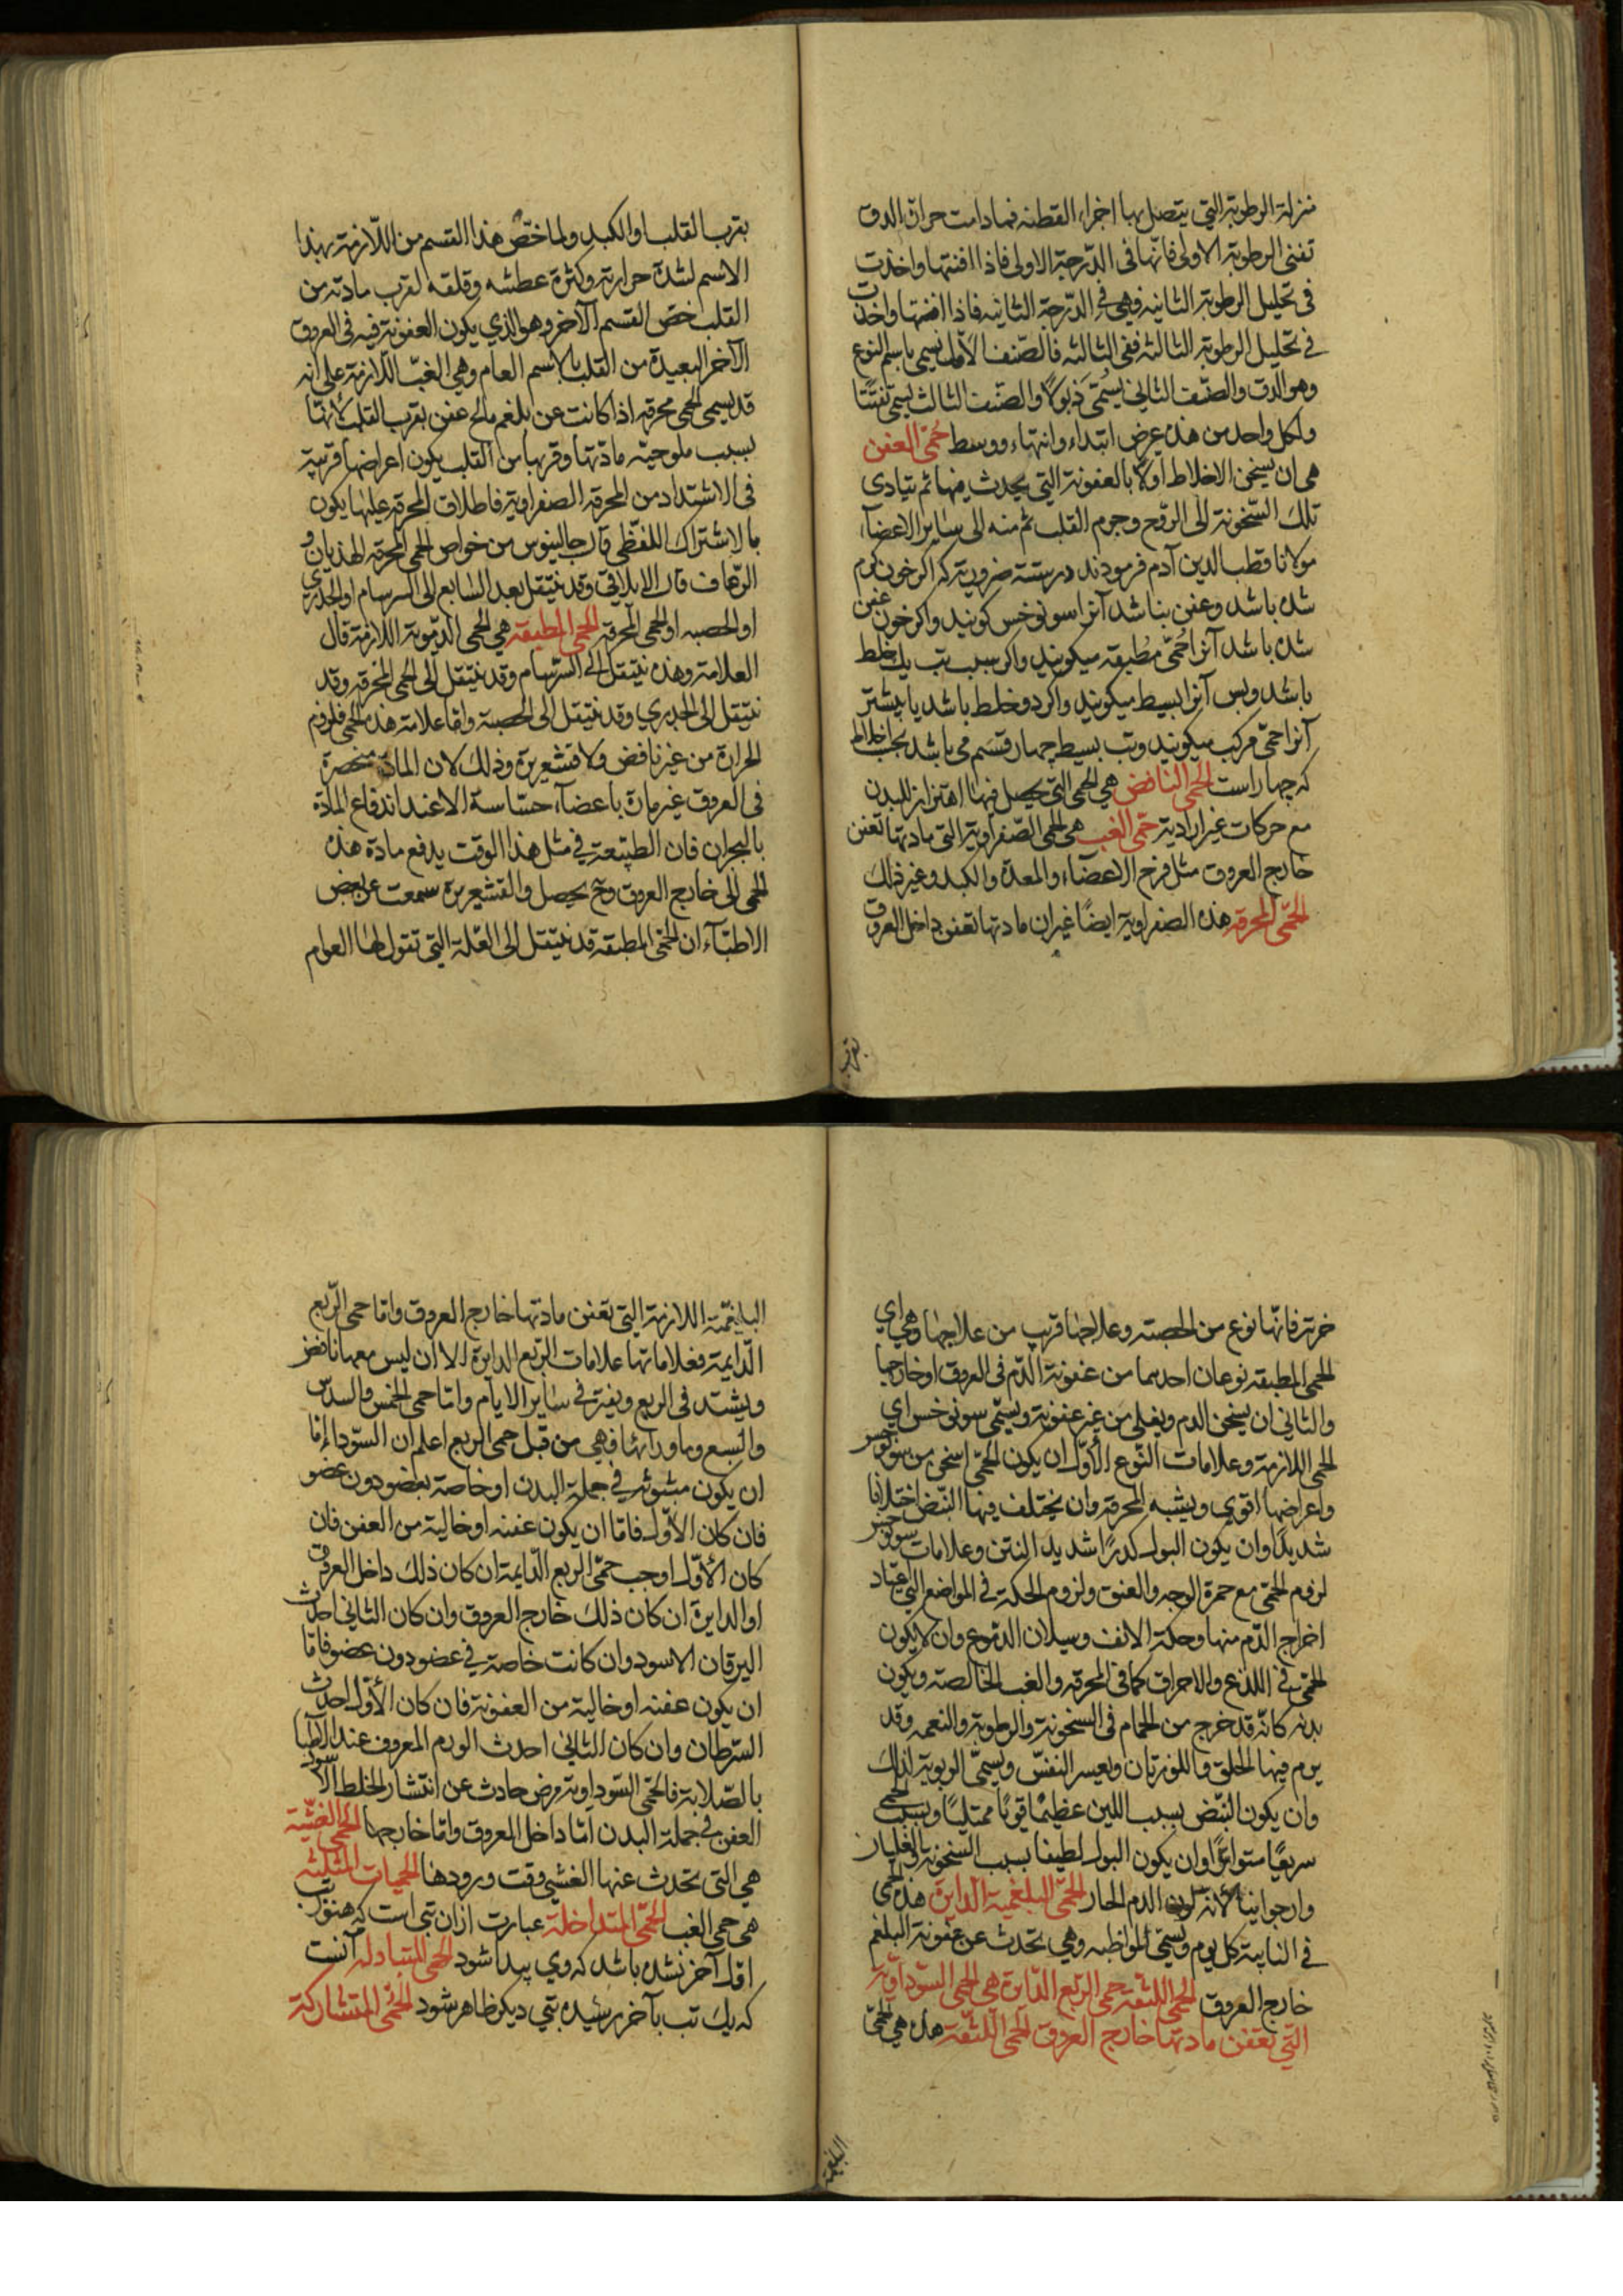 منزلة الرطوبة التي يتصل بها اجزاء القطنه فمادامت حرارة الدق
تفنى الرطوبة الاولى فانها في الدرجة الاولى فاذا افنتها واخذت
في تحليل الرطوبة الثانيه فهي في الدرجة الثانيه فاذا افنتها واخذت
في تحليل الرطوبة الثالثه ففي الثالثه فالصنف الاول تسمى باسم النوع
وهو الدق والصنف الثاني يسمى ذبولا والصنف الثالث يسمى تفتتا
ولكل واحد من هذه عرض ابتداء وانتهاء ووسط حمى العفن
هي ان يسخن الاخلاط اولا بالعفونة التي يحدث فيها ثم يتادى
تلك السخونة الى الروح وجرم القلب ثم منه الى سائر الاعضاء
مولانا قطب الدين آدم فرمودند درسته ضروريه كه اكر خون كرم
شده باشد وعفن نباشد آنرا سونوخس كويند واكر خون عفن
شده باشد آنرا حمى مطبقه ميكويند واكر سبب تب يك خلط
باشد وبس آنرا بسيط ميكويند واكر دو خلط باشد يا بيشتر
آنرا حمى مركب ميكويند وتب بسيط چهار قسم مى باشد بحسب اخلاط
كه چهار است الحمى النافض هي الحمى التي يحصل فيها اهتزاز للبدن
مع حركات غير ارادية حمى الغب هي الحمى الصفراوية التي مادتها تعفن
خارج العروق مثل فرج الاعضاء والمعدة والكبد وغير ذلك
الحمى المحرقه هذه الصفراوية ايضا غير ان مادتها تعفن داخل العروق
بقرب
بقرب القلب او الكبد ولما اختص هذا القسم من اللازمة بهذا
الاسم لشدة حرارته وكثرة عطشه وقلقه لقرب مادته من
القلب خص القسم الآخر وهو الذي يكون العفونة فيه في العروق
الآخر البعيدة من القلب بالاسم العام وهي الغب اللازمة على انه
قد يسمى الحمى محرقه اذا كانت عن بلغم مالح عفن بقرب القلب لانها
بسبب ملوحية مادتها وقربها من القلب يكون اعراضها قريبة
في الاشتداد من المحرقه الصفراوية فاطلاق المحرقه عليها يكون
بالاشتراك اللفظي قال جالينوس من خواص الحمى المحرقه الهذيان و
الرعاف قال الايلاقي وقد ينتقل بعد السابع الى السرسام او الجدري
او الحصبه او الحمى المحرقه الحمى المطبقه هي الحمى الدموية اللازمة قال
العلامة وهذه ينتقل الى السرسام وقد ينتقل الى الحمى المحرقه وقد
ينتقل الى الجدري وقد ينتقل الى الحصبة واما علامة هذه الحمى فلزوم
الحرارة من غير نافض ولا قشعريرة وذلك لان المادة منحصرة
في العروق غير مارة باعضاء حساسة الا عند اندفاع المادة
بالبحران فان الطبيعة في مثل هذا الوقت يدفع مادة هذه
الحمى الى خارج العروق وح يحصل والقشعريرة سمعت عن بعض
الاطباء ان الحمى المطبقه قد ينتقل الى العلة التي تقول لها العوام
فانها نوع من الحصبه وعلاجها قريب من علاجها وهي اي
الحمى المطبقه نوعان احدهما من عفونة الدم في العروق او خارجها
والثاني ان يسخن الدم ويغلي من غير عفونة ويسمى سونوخس اي
الحمى اللازمة وعلامات النوع الاول ان يكون الحمى اسخن من سونوخس
واعراضها اقوى ويشبه المحرقه وان يختلف فيها النبض اختلافا
شديدا وان يكون البول كدرا شديد النتن وعلامات سونوخس
لزوم الحمى مع حمرة الوجه والعنق ولزوم الحكة في المواضع التي يعتاد
اخراج الدم منها وحكة الانف وسيلان الدموع وان لا يكون
الحمى في اللذع والاحراق كما في المحرقه والغب الخالصه ويكون
بدنه كانه قد خرج من الحمام في السخونة والرطوبة والنعمه وقد
يرم فيها الحلق واللوزتان ويعسر النفس ويسمى الربوية لذلك
وان يكون النبض بسبب اللين عظيما قويا ممتليا وبسبب الحمى
سريعا متواترا وان يكون البول لطيفا بسبب السخونة والغليان
وارجوانيا لانه لون الدم الحار الحمى البلغمية الدايرة هذه الحمى
في النايبة كل يوم ويسمى المواظبه وهي تحدث عن عفونة البلغم
خارج العروق الحمى اللثقه حمى الربع الدايرة هي الحمى السوداوية
التي تعفن مادتها خارج العروق الحمى اللثقه هذه هي الحمى
البلغمية
البلغمية اللازمة التي تعفن مادتها خارج العروق واما حمى الربع
الدايمة فعلاماتها علامات الربع الدايرة الا ان ليس معها نافض
ويشتد في الربع ويفتر في ساير الايام واما حمى الخمس والسدس
والسبع وما ورائها فهي من قبل حمى الربع اعلم ان السوداء اما
ان يكون مبثوثة في جملة البدن او خاصة بعضو دون عضو
فان كان الاول فاما ان يكون عفنه او خالية من العفن فان
كان الاول اوجب حمى الربع الدايمة ان كان ذلك داخل العروق
او الدايرة ان كان ذلك خارج العروق وان كان الثاني احدث
اليرقان الاسود وان كانت خاصة في عضو دون عضو فاما
ان يكون عفنه او خالية من العفونة فان كان الاول احدث
السرطان وان كان الثاني احدث الورم المعروف عند الاطبا
بالصلابة فالحمى السوداوية مرض حادث عن انتشار الخلط الاسود
العفن في جملة البدن اما داخل العروق واما خارجها الحمى الغشيية
هي التي تحدث عنها الغشي وقت ورودها الحميات المثلثه
هي حمى الغب الحمى المتداخلة عبارت ازان تبى است كه هنوز تب
اول آخر نشده باشد كه وى پيدا شود الحمى المتبادله آنست
كه يك تب بآخر رسيده تبى ديكر ظاهر شود الحمى المتشاركة